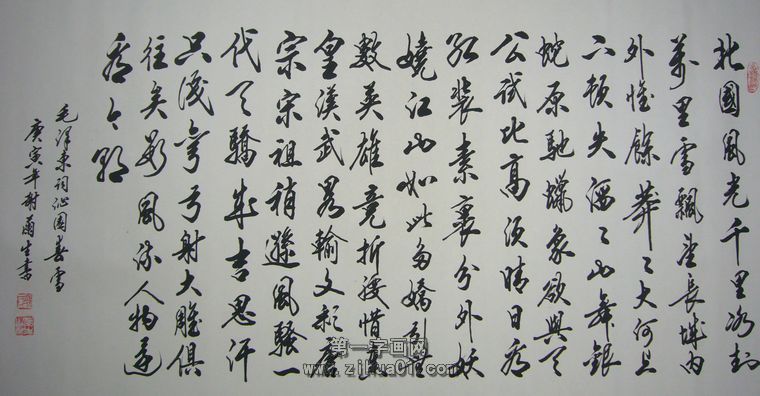 北國風光千里冰封
萬里雪飄望長城內
外惟餘莽々大河上
下頓失滔々山舞銀
蛇原馳蠟象欲與天
公試比高須晴日看
紅裝素裹分外妖
嬈江山如此多嬌引無
數英雄競折腰惜秦
皇漢武略輸文采唐
宗宋祖稍遜風騷一
代天驕成吉思汗
只識彎弓射大雕俱
往矣數風流人物還
看今朝
毛澤東詞沁園春雪
庚寅年謝生書
第一字画网